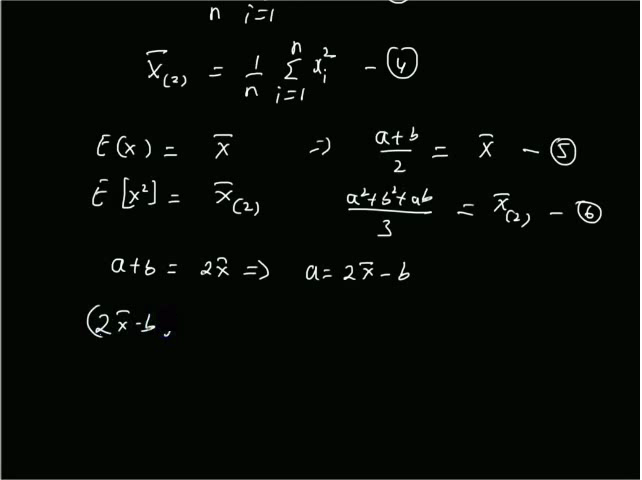 n i=1
x̄₍₂₎ = 1/n Σⁿᵢ₌₁ xᵢ² - ④
E(x) = x̄ => (a+b)/2 = x̄ - ⑤
E[x²] = x̄₍₂₎ (a²+b²+ab)/3 = x̄₍₂₎ - ⑥
a+b = 2x̄ => a = 2x̄ - b
(2x̄ - b